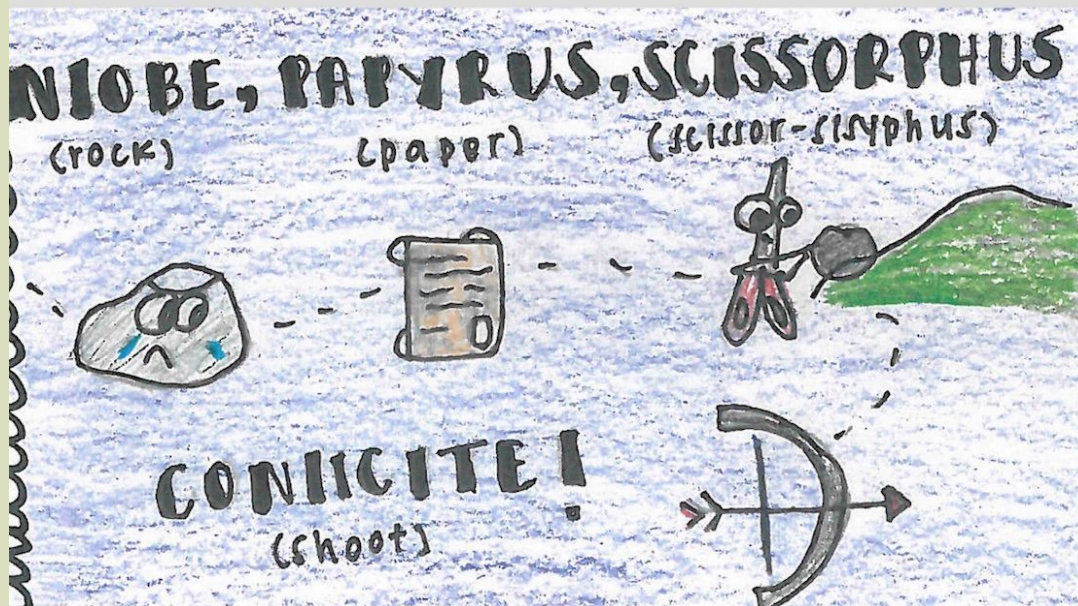 NIOBE, PAPYRUS, SCISSORPHUS
(rock) (paper) (scissor-sisyphus)
CONIICITE!
(shoot)